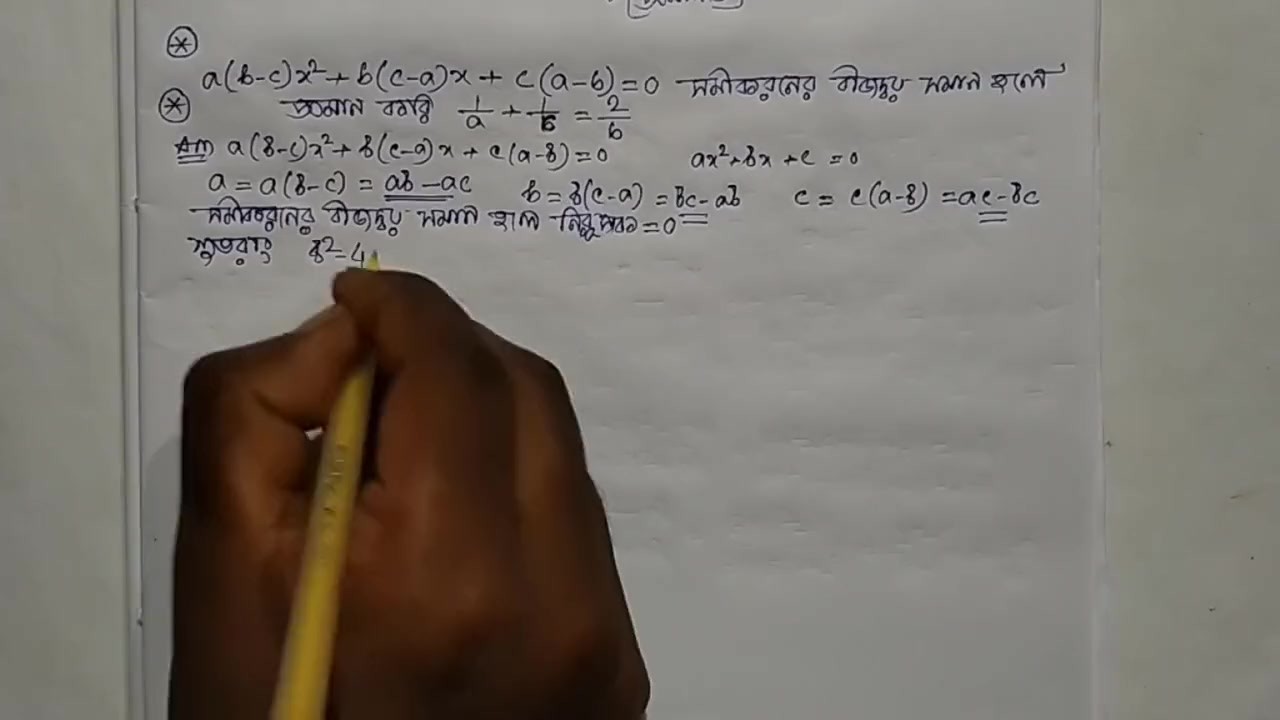 a(b-c)x²+b(c-a)x+c(a-b)=0 সমীকরনের বীজদ্বয় সমান হলে
প্রমান করি 1/a + 1/b = 2/b
Ans a(b-c)x²+b(c-a)x+c(a-b)=0 ax²+bx+c=0
a=a(b-c)=ab-ac b=b(c-a)=bc-ab c=c(a-b)=ac-bc
সমীকরনের বীজদ্বয় সমান হলে নিরুপক=0
সুতরাং b²-4